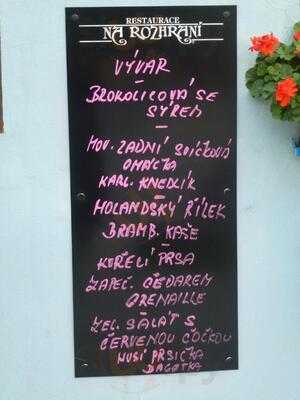 RESTAURACE
NA ROZHRANÍ
VÝVAR
–
BROKOLICOVÁ SE
SÝREM
–
HOV. ZADNÍ SVÍČKOVÁ
OMÁČKA
KARL. KNEDLÍK
–
HOLANDSKÝ ŘÍZEK
BRAMB. KAŠE
–
KUŘECÍ PRSA
ZAPEČ. ČEDAREM
GRENAILLE
–
ZEL. SALÁT S
ČERVENOU ČOČKOU
HUSÍ PRSÍČKA
BAGETKA